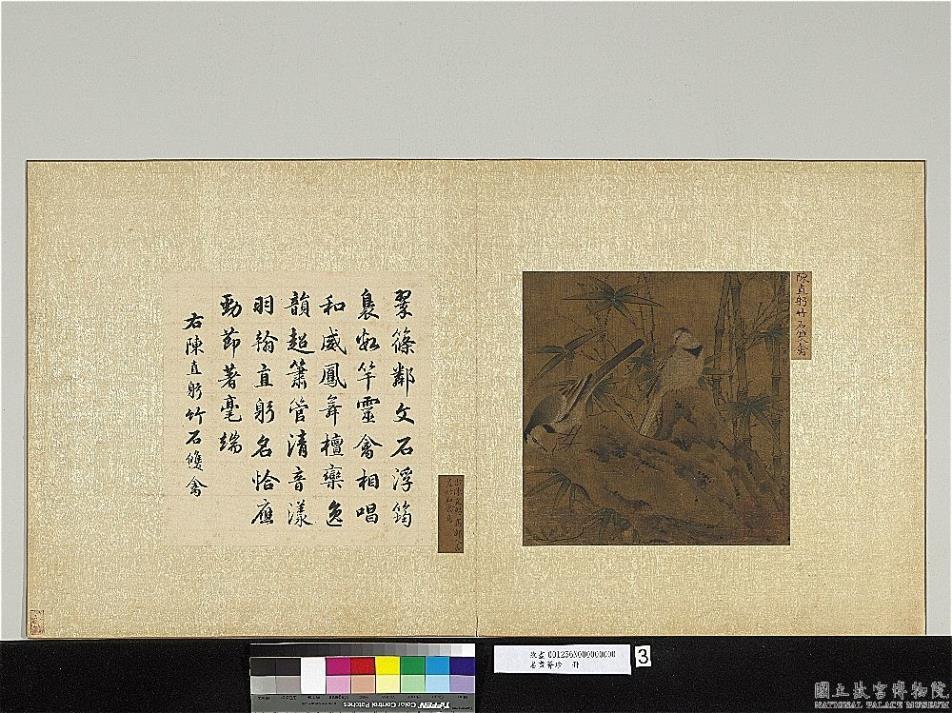 陳直躬竹石雙禽
翠篠鄰文石浮筠
裊數竿靈禽相唱
和威鳳舞檀欒逸
韻超簫管清音漾
羽翰直躬名恰應
勁節著毫端
右陳直躬竹石雙禽
故畫 001256N000000000
名畫薈珍 冊
3
TIFFEN Color Control Patches
國立故宮博物院
NATIONAL PALACE MUSEUM